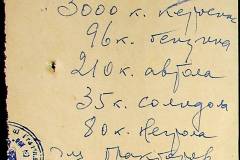 3000 к. Керосина
96 к. бензина
210 к. автола
35 к. солидола
80 к. нигрола